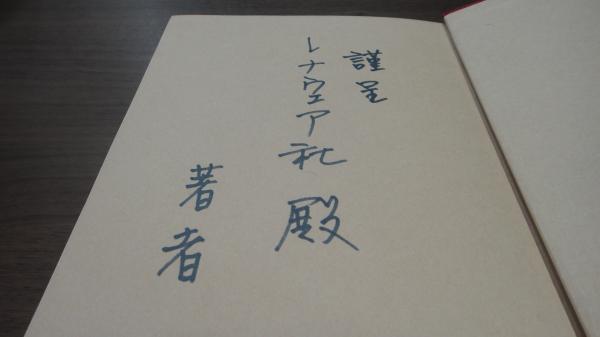 謹呈
レナウェア社 殿
著者